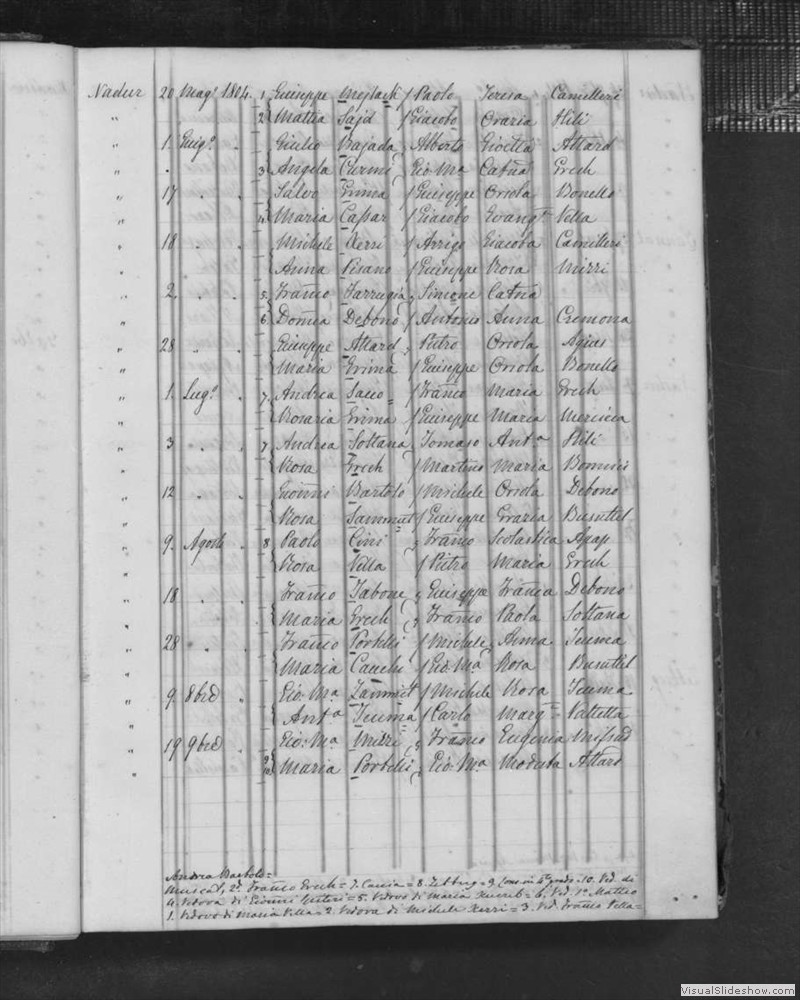 Nadur 20 Magº 1804. 1 Giuseppe Mejlack / Paolo Teresa Camilleri
" 2 Mattia Sajd / Giacobo Grazia Hili
" 1. Giugº . Giulio Bajada Alberto Gioetta Attard
" 3 Angela Curmi Gio: Mª Catñª Grech
" 17 . . Salvo Grima / Giuseppe Orsola Bonello
" 4 Maria Cassar / Giacobo Evangª Vella
" 18 . . Michele Xerri / Arrigo Giacoba Camilleri
" Anna Pisano / Giuseppe Rosa Mizzi
" 2. . . 5. Franco Farrugia, Simone Catñª
" 6. Domca Debono / Antonio Anna Cremona
" 28 " . Giuseppe Attard Pietro Orsola Agius
" Maria Grima / Giuseppe Orsola Bonello
" 1. Lugº . 7. Andrea Saco = / Franco Maria Grech
" Rosaria Grima / Giuseppe Maria Mercieca
" 3 . . 7. Andrea Soltana, Tomaso Antª Hili
" Rosa Grech / Martino Maria Bonnici
" 12 . . Gionni Bartolo / Michele Orsola Debono
" Rosa Sammut / Giuseppe Grazia Busuttil
" 9. Agosto . 8 Paolo Cini Franco Scolastica Apap
" Rosa Vella / Pietro Maria Grech
" 18 . . Franco Tabone Giuseppe Franca Debono
" Maria Grech Franco Paola Soltana
" 28 . . Franco Portelli / Michele Anna Teuma
" Maria Cauchi / Gio: Mª Rosa Busuttil
" 9. 8bre . Gio: Mª Zammit / Michele Rosa Teuma
" Antª Teuma / Carlo Margª Valletta
" 19 9bre . Gio: Mª Mizzi Franco Eugenia Mifsud
" 9 10 Maria Portelli Gio: Mª Modesta Attard
Andrea Bartolo =
Muscat, 2º. Franco Grech = 7. Cauia = 8. Zebbug = 9. Cons. in 4º grado = 10. Ved. di
4. Vedova di Gionni = 5. Vedovo di Maria Xuereb = 6. Ved. 1º. Matteo
1. Vedovo di Maria Vella = 2. Vedova di Michele Xerri = 3. Ved. Franco Vella =
VisualSlideshow.com